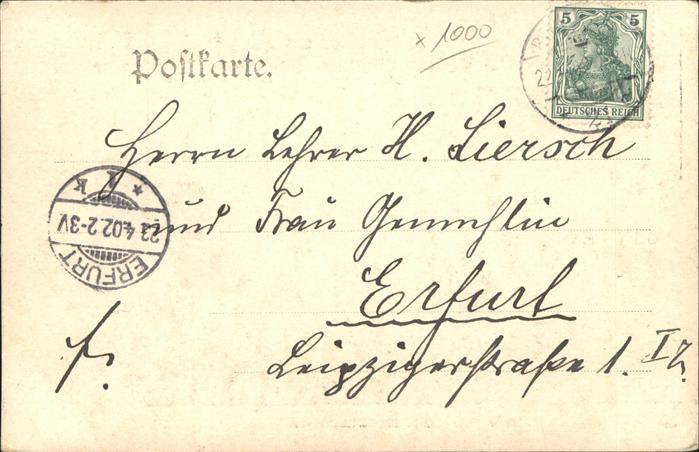 x 1000
5 5
DEUTSCHES REICH
22
Postkarte.
Herrn Lehrer H. Liersch
und Frau Gemahlin
Erfurt
Leipzigerstraße 1. I
fr.
* 1 k
23.4.02.2-3V
ERFURT